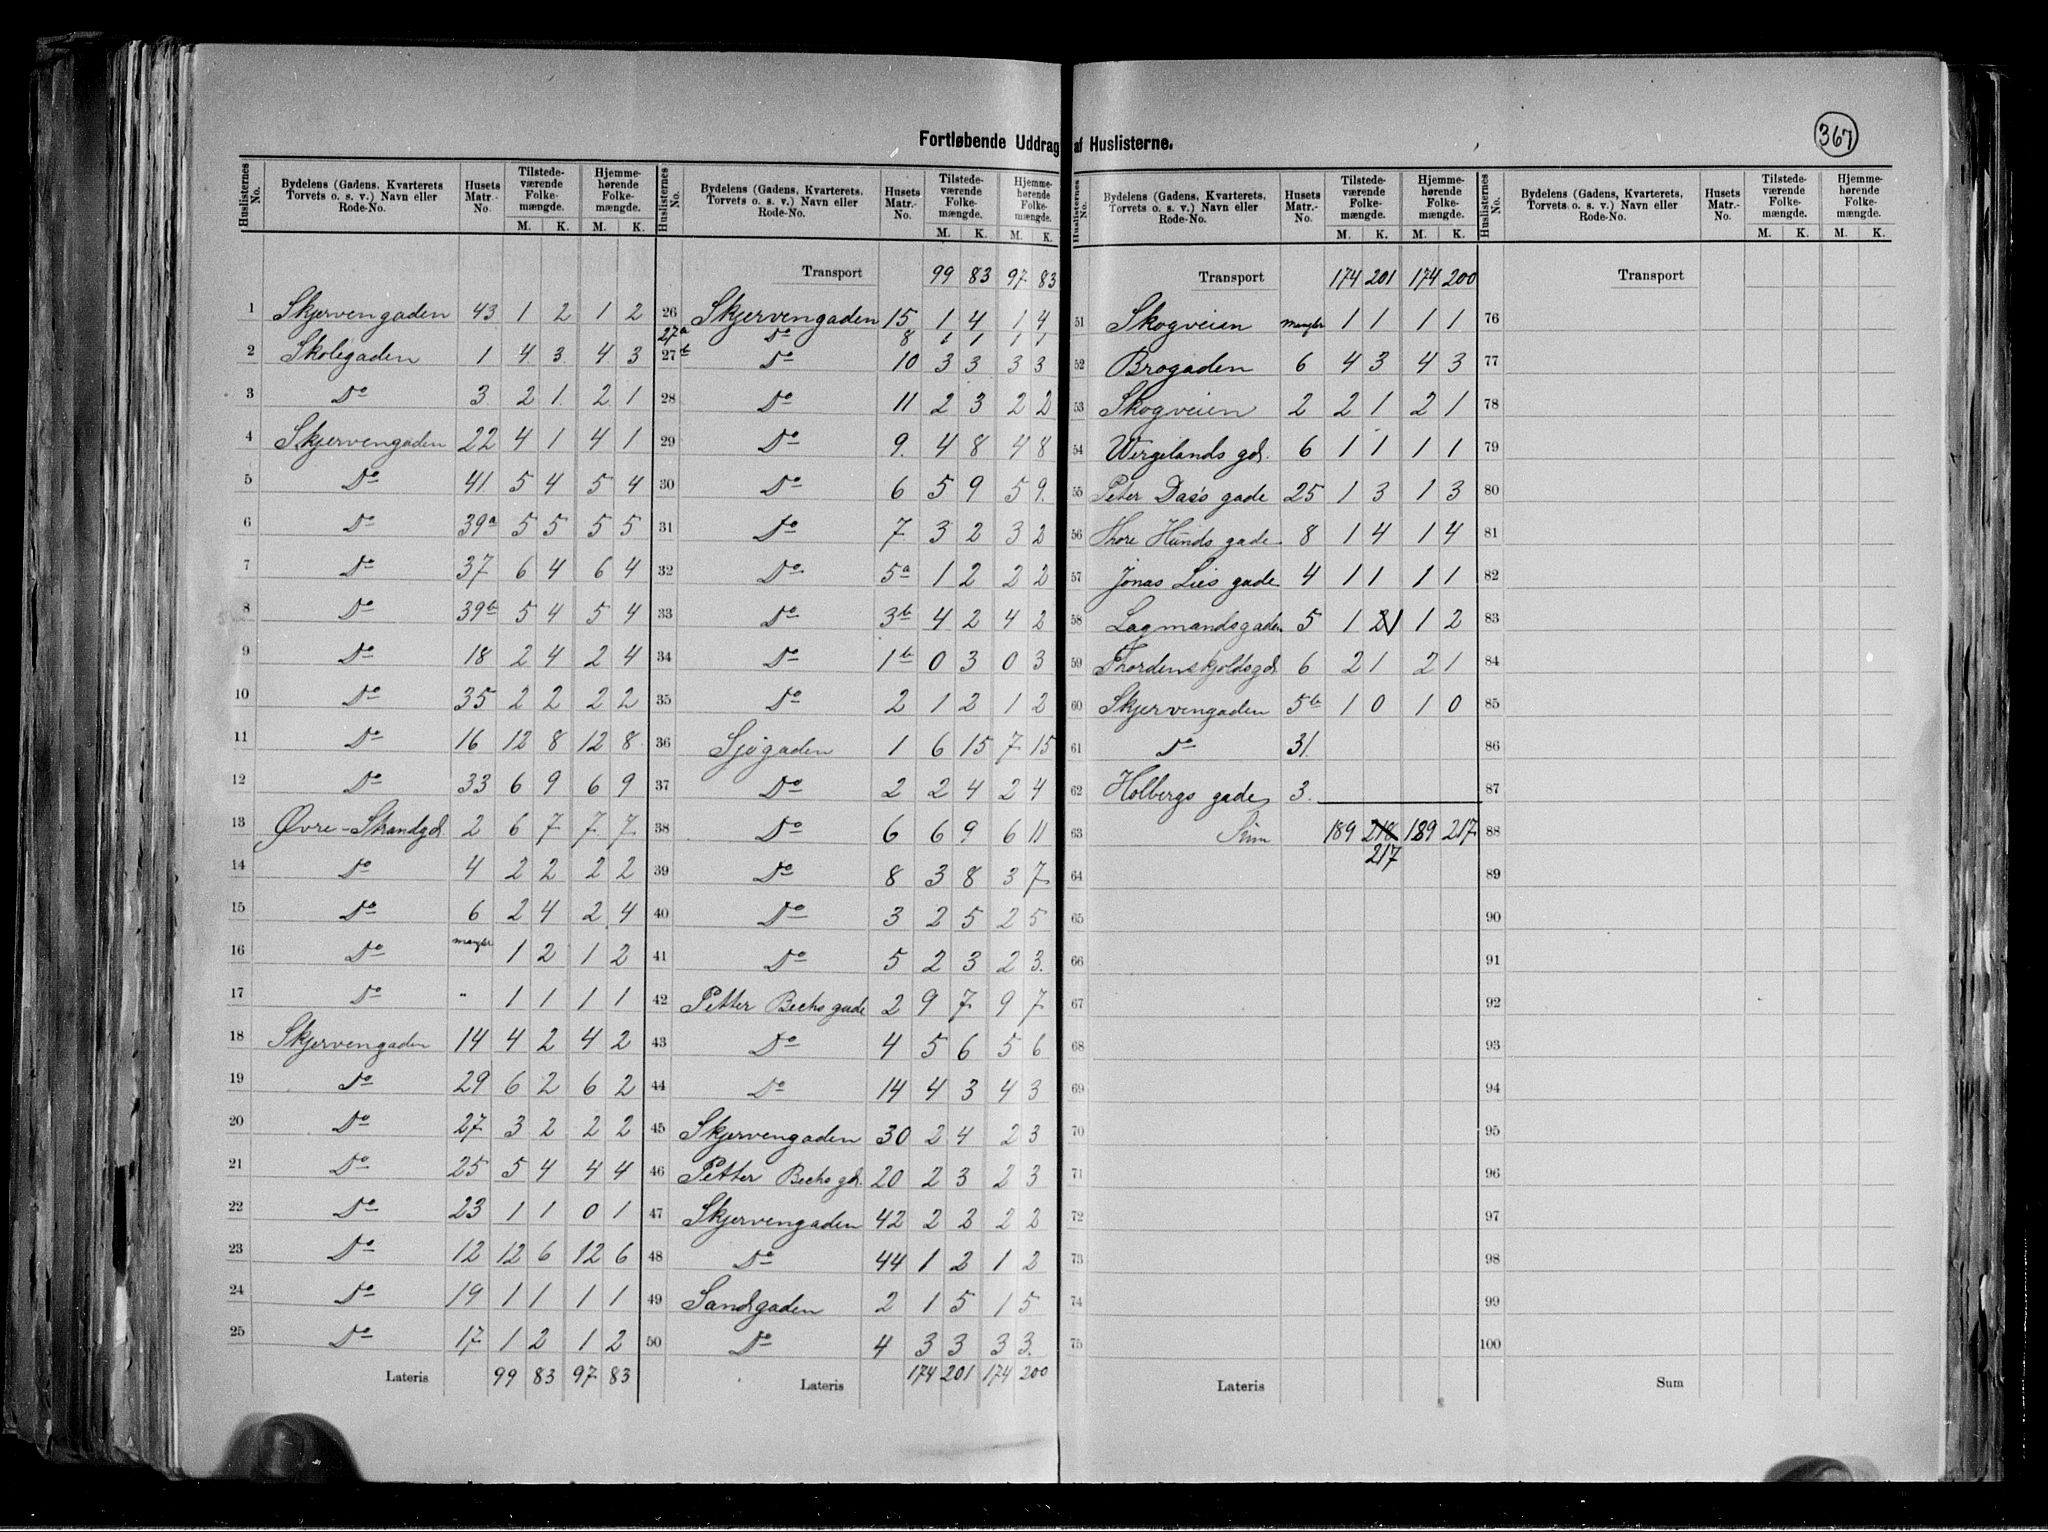 Fortløbende Uddrag af Huslisterne.
367
Huslisternes No. Bydelens (Gadens, Kvarterets Torvets o. s. v.) Navn eller Rode-No. Husets Matr.-No. Tilstedeværende Folkemængde. M. K. Hjemmehørende Folkemængde. M. K.
1 Skjervengaden 43 1 2 1 2
2 Skolegaden 1 4 3 4 3
3 Do 3 2 1 2 1
4 Skjervengaden 22 4 1 4 1
5 Do 41 5 4 5 4
6 Do 39a 5 5 5 5
7 Do 37 6 4 6 4
8 Do 39b 5 4 5 4
9 Do 18 2 4 2 4
10 Do 35 2 2 2 2
11 Do 16 12 8 12 8
12 Do 33 6 9 6 9
13 Øvre-Strandgd. 2 6 7 7 7
14 Do 4 2 2 2 2
15 Do 6 2 4 2 4
16 Do mangler 1 2 1 2
17 Do " 1 1 1 1
18 Skjervengaden 14 4 2 4 2
19 Do 29 6 2 6 2
20 Do 27 3 2 2 2
21 Do 25 5 4 4 4
22 Do 23 1 1 0 1
23 Do 12 12 6 12 6
24 Do 19 1 1 1 1
25 Do 17 1 2 1 2
Lateris 99 83 97 83
Huslisternes No. Bydelens (Gadens, Kvarterets, Torvets o. s. v.) Navn eller Rode-No. Husets Matr.-No. Tilstedeværende Folkemængde. M. K. Hjemmehørende Folkemængde. M. K.
Transport 99 83 97 83
26 Skjervengaden 15 1 4 1 4
27a Do 8 1 1 1 1
27b Do 10 3 3 3 3
28 Do 11 2 3 2 2
29 Do 9. 4 8 4 8
30 Do 6 5 9 5 9.
31 Do 7 3 2 3 2
32 Do 5a 1 2 2 2
33 Do 3b 4 2 4 2
34 Do 1b 0 3 0 3
35 Do 2 1 2 1 2
36 Sjøgaden 1 6 15 7 15
37 Do 2 2 4 2 4
38 Do 6 6 9 6 11
39 Do 8 3 8 3 7
40 Do 3 2 5 2 5
41 Do 5 2 3 2 3.
42 Petter Bechs gade 2 9 7 9 7
43 Do 4 5 6 5 6
44 Do 14 4 3 4 3
45 Skjervengaden 30 2 4 2 3
46 Petter Bechs gd. 20 2 3 2 3
47 Skjervengaden 42 2 2 2 2
48 Do 44 1 2 1 2
49 Sandgaden 2 1 5 1 5
50 Do 4 3 3 3 3.
Lateris 174 201 174 200
Huslisternes No. Bydelens (Gadens, Kvarterets, Torvets o. s. v.) Navn eller Rode-No. Husets Matr.-No. Tilstedeværende Folkemængde. M. K. Hjemmehørende Folkemængde. M. K.
Transport 174 201 174 200
51 Skogveien mangler 1 1 1 1
52 Brogaden 6 4 3 4 3
53 Skogveien 2 2 1 2 1
54 Wergelands gd. 6 1 1 1 1
55 Peter Dass's gade 25 1 3 1 3
56 Thore Hunds gade 8 1 4 1 4
57 Jonas Lies gade 4 1 1 1 1
58 Lagmandsgaden 5 1 2 1 1 2
59 Thordenskjoldsgd. 6 2 1 2 1
60 Skjervengaden 5b 1 0 1 0
61 Do 31.
62 Holbergs gade 3.
63 Sum 189 218 189 217
217
64
65
66
67
68
69
70
71
72
73
74
75
Lateris
Huslisternes No. Bydelens (Gadens, Kvarterets, Torvets o. s. v.) Navn eller Rode-No. Husets Matr.-No. Tilstedeværende Folkemængde. M. K. Hjemmehørende Folkemængde. M. K.
Transport
76
77
78
79
80
81
82
83
84
85
86
87
88
89
90
91
92
93
94
95
96
97
98
99
100
Sum